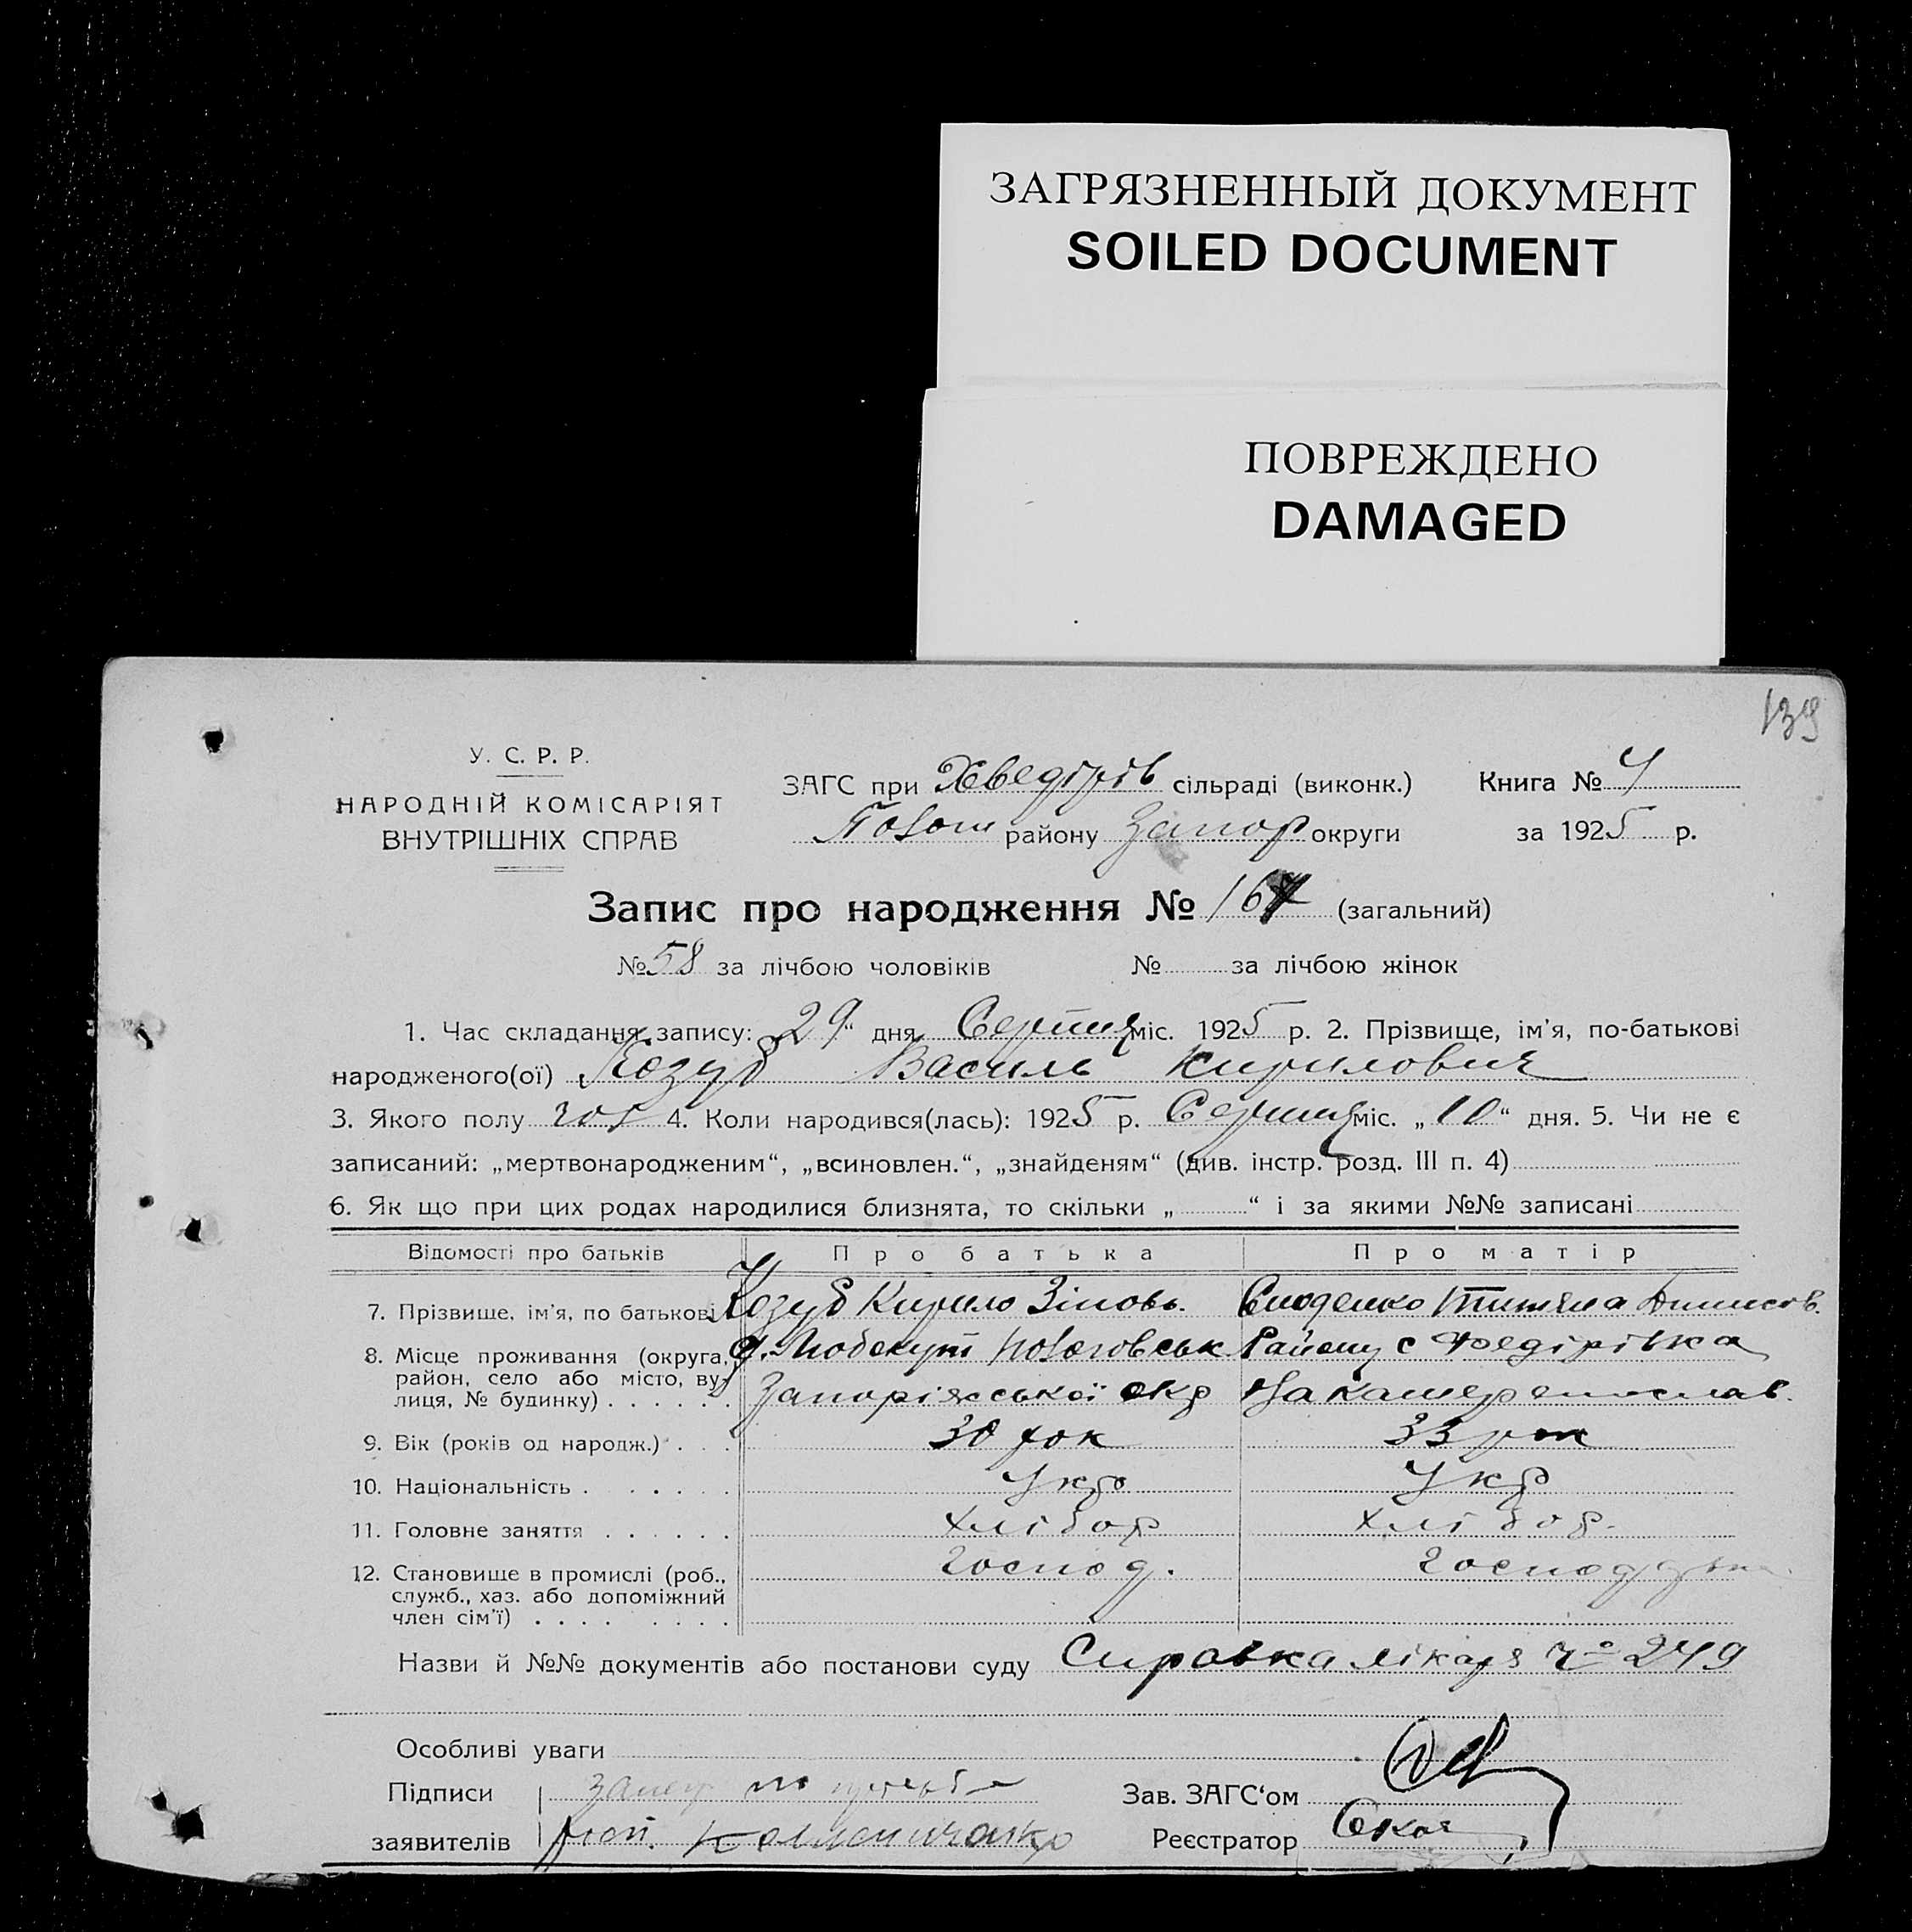 ЗАГРЯЗНЕННЫЙ ДОКУМЕНТ
SOILED DOCUMENT
ПОВРЕЖДЕНО
DAMAGED
139
У. С. Р. Р.
НАРОДНІЙ КОМІСАРІЯТ
ВНУТРІШНІХ СПРАВ
ЗАГС при Хведірів сільраді (виконк.) Книга №
району Запор округи за 1925 р.
Запис про народження № 167 (загальний)
№ 58 за лічбою чоловіків № за лічбою жінок
1. Час складання запису: 29“ дня Серпня міс. 1925 р. 2. Прізвище, ім'я, по-батькові
народженого(ої) Козуб Василь Кирилович
3. Якого полу чол 4. Коли народився(лась): 1925 р. Серпня міс. „10“ дня. 5. Чи не є
записаний: „мертвонародженим“, „всиновлен.“, „знайденям“ (див. інстр. розд. III п. 4)
6. Як що при цих родах народилися близнята, то скільки „ “ і за якими №№ записані
Відомості про батьків Про батька Про матір
7. Прізвище, ім'я, по батькові Козуб Кирило Зіновь.
8. Місце проживання (округа, Району с Федірівка
район, село або місто, ву-
лиця, № будинку) Запоріжської окр
9. Вік (років од народж.) 30 рок 33 рок
10. Національність Укр Укр
11. Головне заняття хлібор хлібор.
12. Становище в промислі (роб., господ.
служб., хаз. або допоміжний
член сім'ї)
Назви й №№ документів або постанови суду Справка лікаря 249
Особливі уваги
Підписи Зав. ЗАГС'ом
заявителів Реєстратор